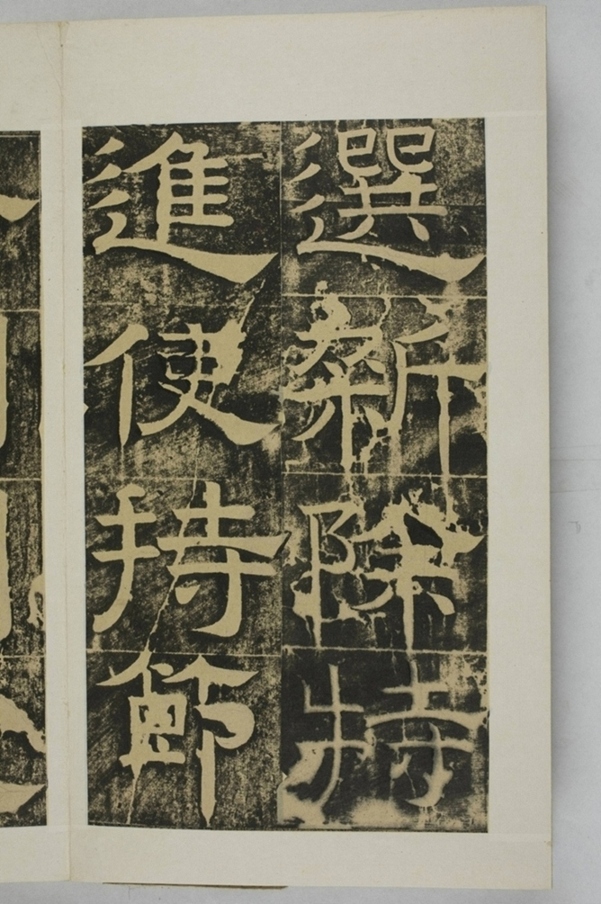 選新除特
進使持節